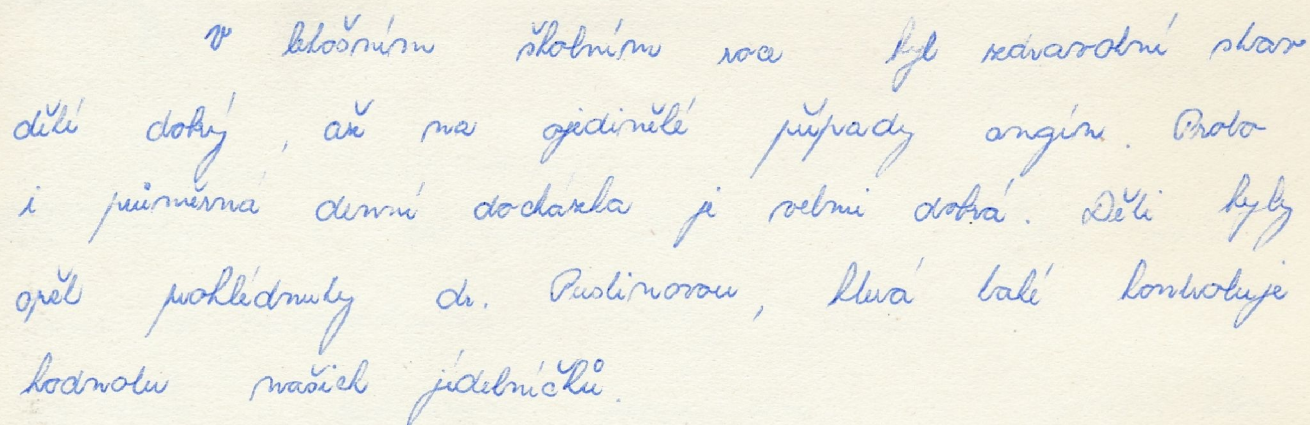 V letošním školním roce byl zdravotní stav
dětí dobrý, až na ojedinělé případy angín. Proto
i průměrná denní docházka je velmi dobrá. Děti byly
opět prohlédnuty dr. Pustinovou, která také kontroluje
hodnotu našich jídelníčků.